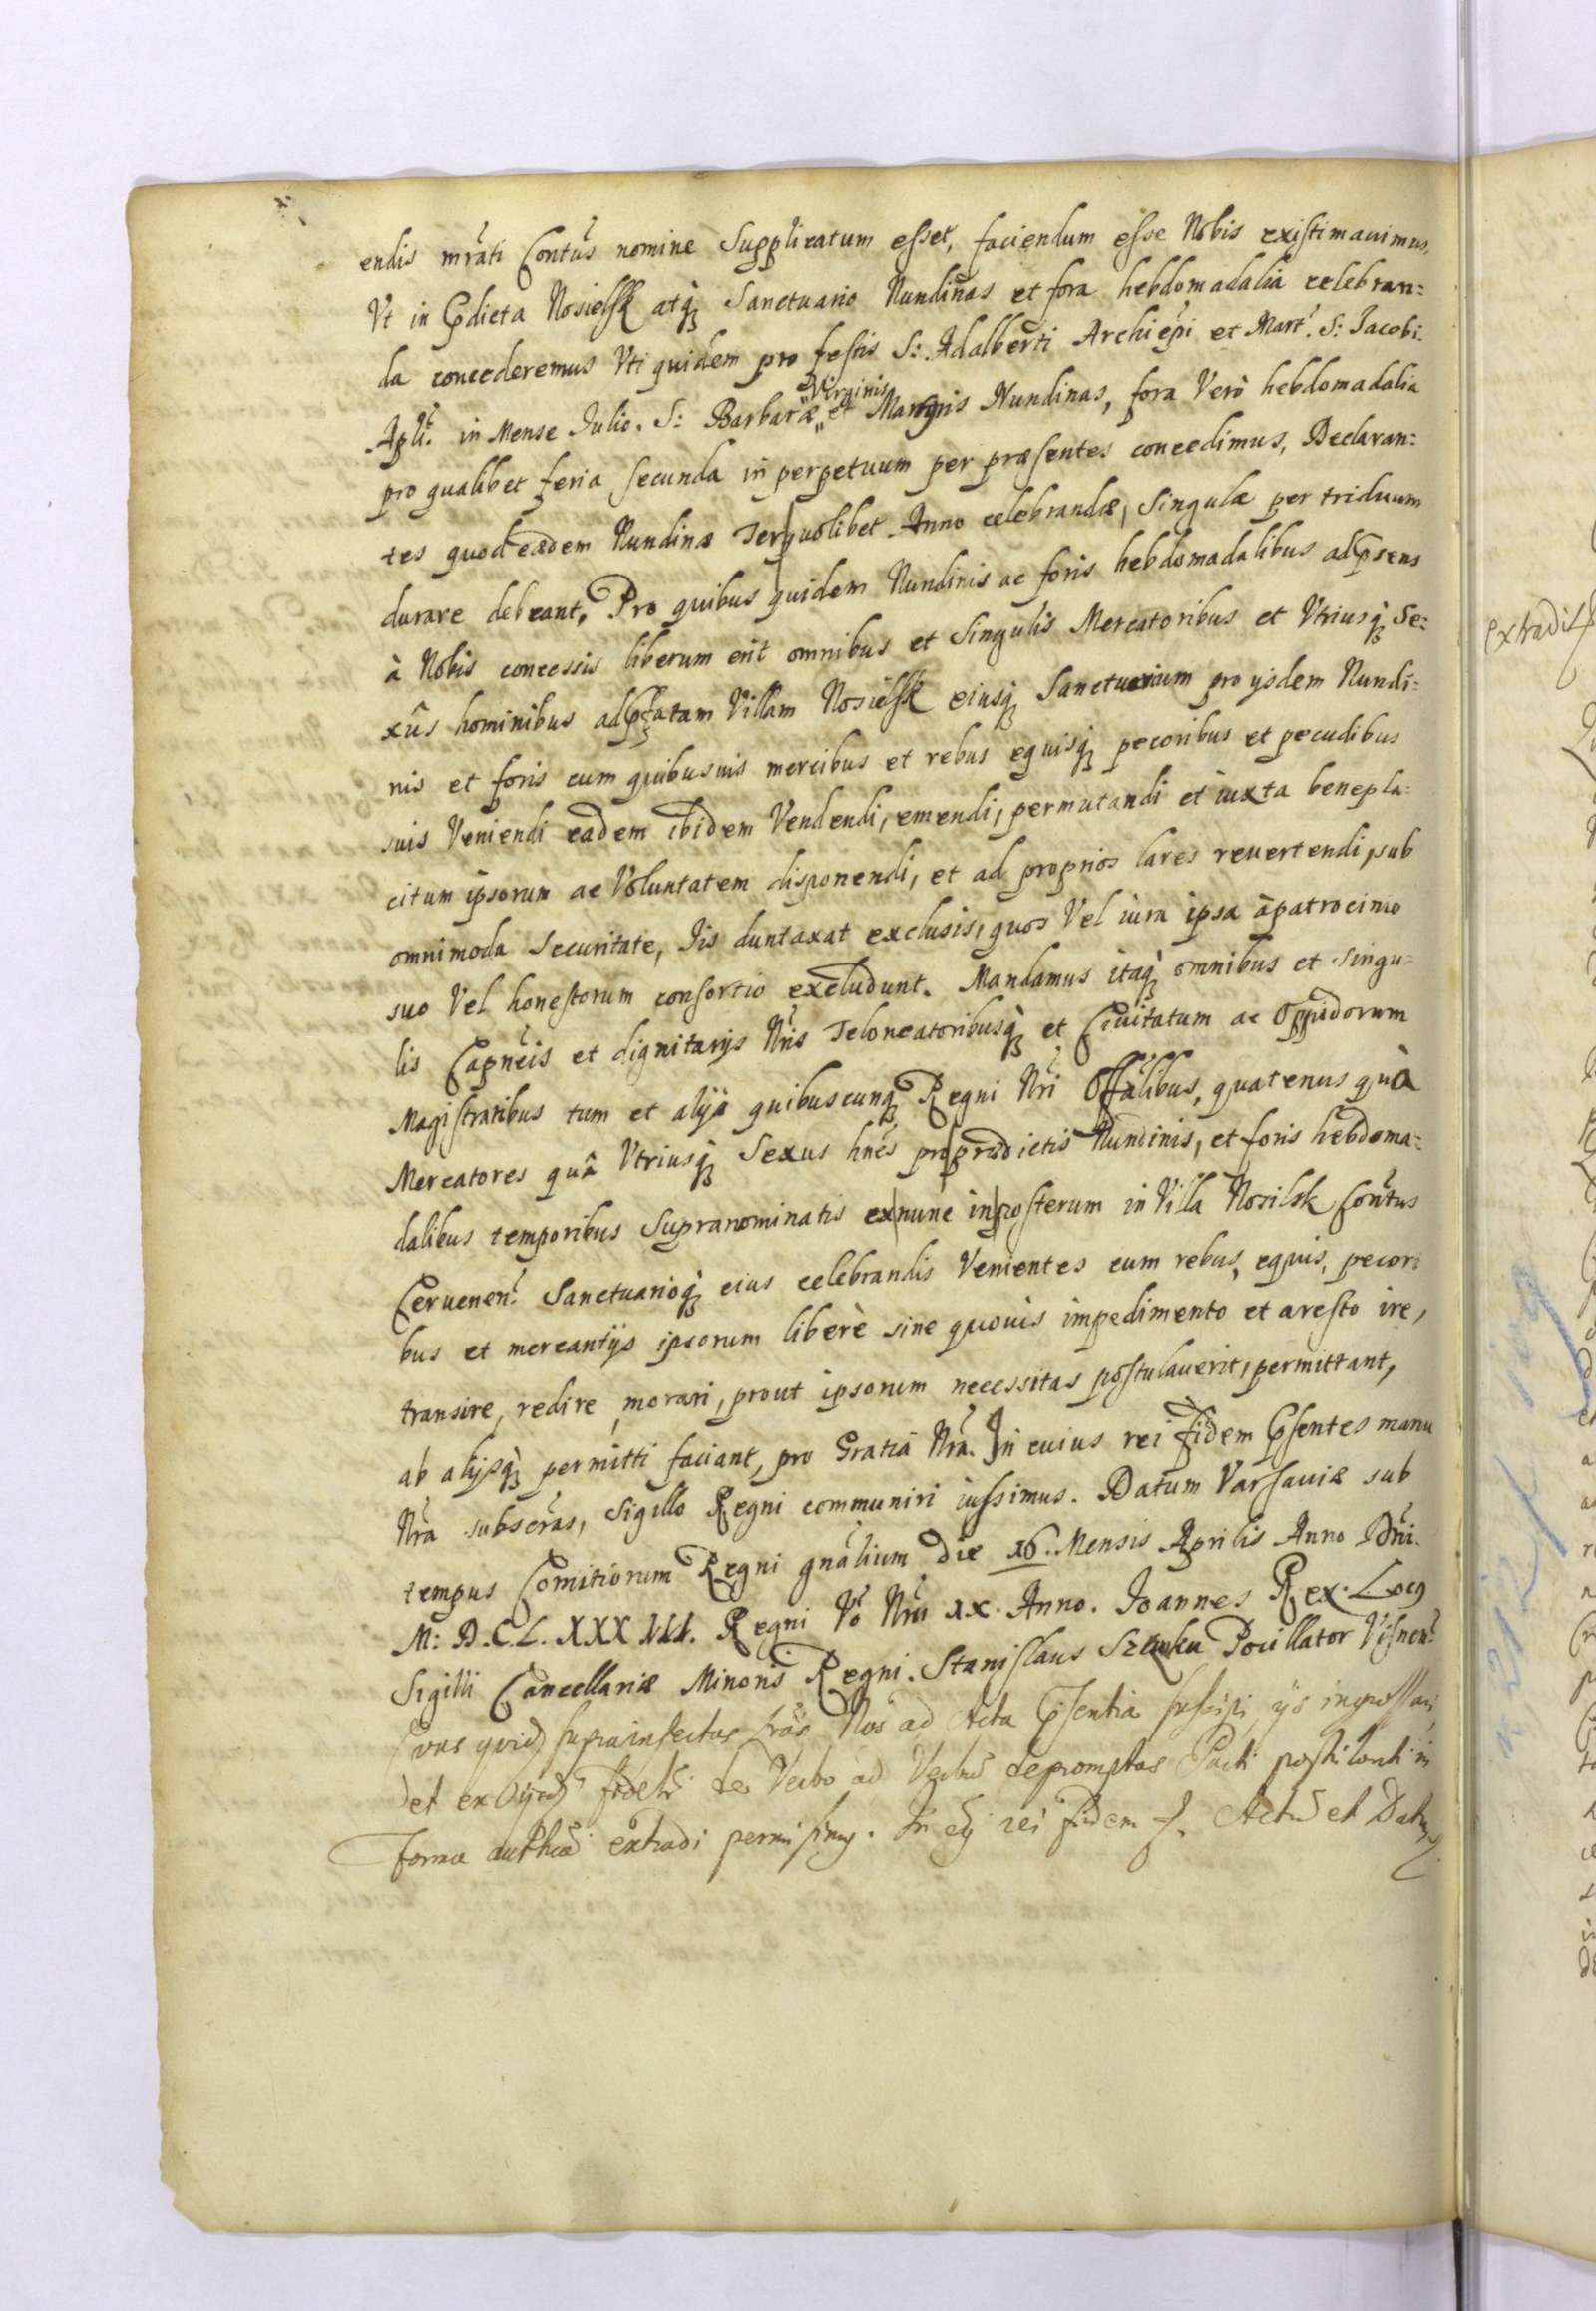 endis mrāti Contūs nomine Supplicatum esset, faciendum esse Nobis existimauimus,
Vt in Pdicta Nosielsk atq; Sanctuario Nundinas et fora hebdomadalia celebran:
da concederemus Vti quidem pro festis S: Adalberti Archiēpi et Mart: S: Jacobi
Apli: in Mense Julio. S: Barbaræ Virginis et Martyris Nundinas, fora Verò hebdomadalia
pro qualibet feria secunda in perpetuum per præsentes concedimus, Declaran:
tes quod eædem Nundinæ Ter quolibet Anno celebrandæ, Singulæ per triduum
durare debeant, Pro quibus quidem Nundinis ac foris hebdomadalibus ad psens
à Nobis concessis liberum erit omnibus et Singulis Mercatoribus et Vtriusq; Se:
xûs hominibus ad pfatam Villam Nosielsk eiusq; Sanctuarium pro ijsdem Nundi:
nis et foris cum quibusuis mercibus et rebus equisq; pecoribus et pecudibus
suis Veniendi eadem ibidem Vendendi, emendi, permutandi et iuxta benepla:
citum ipsorum ac Voluntatem disponendi, et ad proprios lares reuertendi, sub
omnimoda Securitate, Iis duntaxat exclusis, quos Vel iura ipsa à patrocinio
suo Vel honestorum consortio excludunt. Mandamus itaq; omnibus et Singu:
lis Capneis et dignitarijs Nris Teloneatoribusq; et Ciuitatum ac Oppidorum
Magistratibus tum et alijs quibuscunq; Regni Nri Offālibus, quatenus quà
Mercatores quâ Vtriusq; Sexus hnēs pro prædictis Nundinis, et foris hebdoma:
dalibus temporibus Supranominatis ex nunc in posterum in Villa Nosilsk Contūs
Ceruenen: Sanctuarioq; eius celebrandis Venientes cum rebus, equis, pecori
bus et mercantijs ipsorum liberè sine quouis impedimento et aresto ire,
transire, redire, morari, prout ipsorum necessitas postulauerit, permittant,
ab alijsq; permitti faciant, pro Gratiâ Nrā. In cuius rei fidem Psentes manu
Nrā subscrās, Sigillo Regni communiri iussimus. Datum Varsauiæ sub
tempus Comitiorum Regni gnālium die 16. Mensis Aprilis Anno Dni.
M: D.C.L. XXX III. Regni Vō Nri IX. Anno. Joannes Rex. Locus
Sigilli Cancellariæ Minoris Regni. Stanislaus Pocillator Visnen:
quid supra insertas Nos ad Acta Psentia suscipi, ijs ingrossari
et ex ijsd: fideli de Verbo ad Verbū depromptas Parti postulanti in
forma authca extradi permisimus. In cuj rei fidem Actū et Datum
extradit